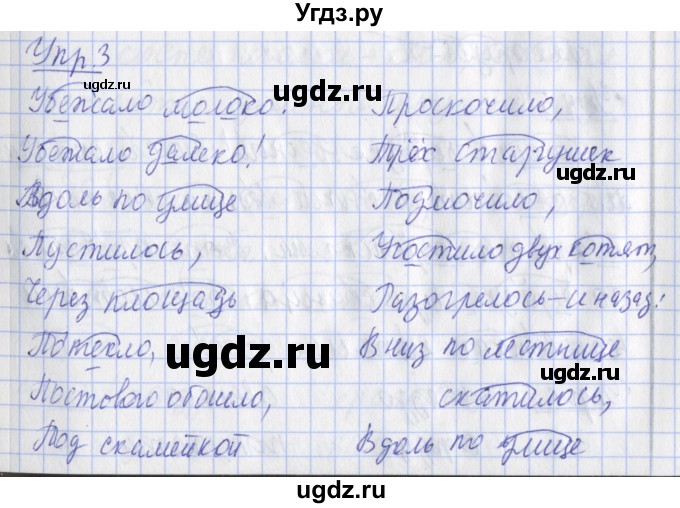 Угдз.ру
Упр.3
Убежало молоко.
Убежало далеко!
Вдоль по улице
Пустилось,
Через площадь
Потекло,
Постового обошло,
Под скамейкой
Проскочило,
Трёх старушек
Подмочило,
Угостило двух котят,
Разогрелось – и назад!
Вниз по лестнице
скатилось,
Вдоль по улице
ugdz.ru
ugdz.ru
ugdz.ru
ugdz.ru
ugdz.ru
ugdz.ru
ugdz.ru
ugdz.ru
ugdz.ru